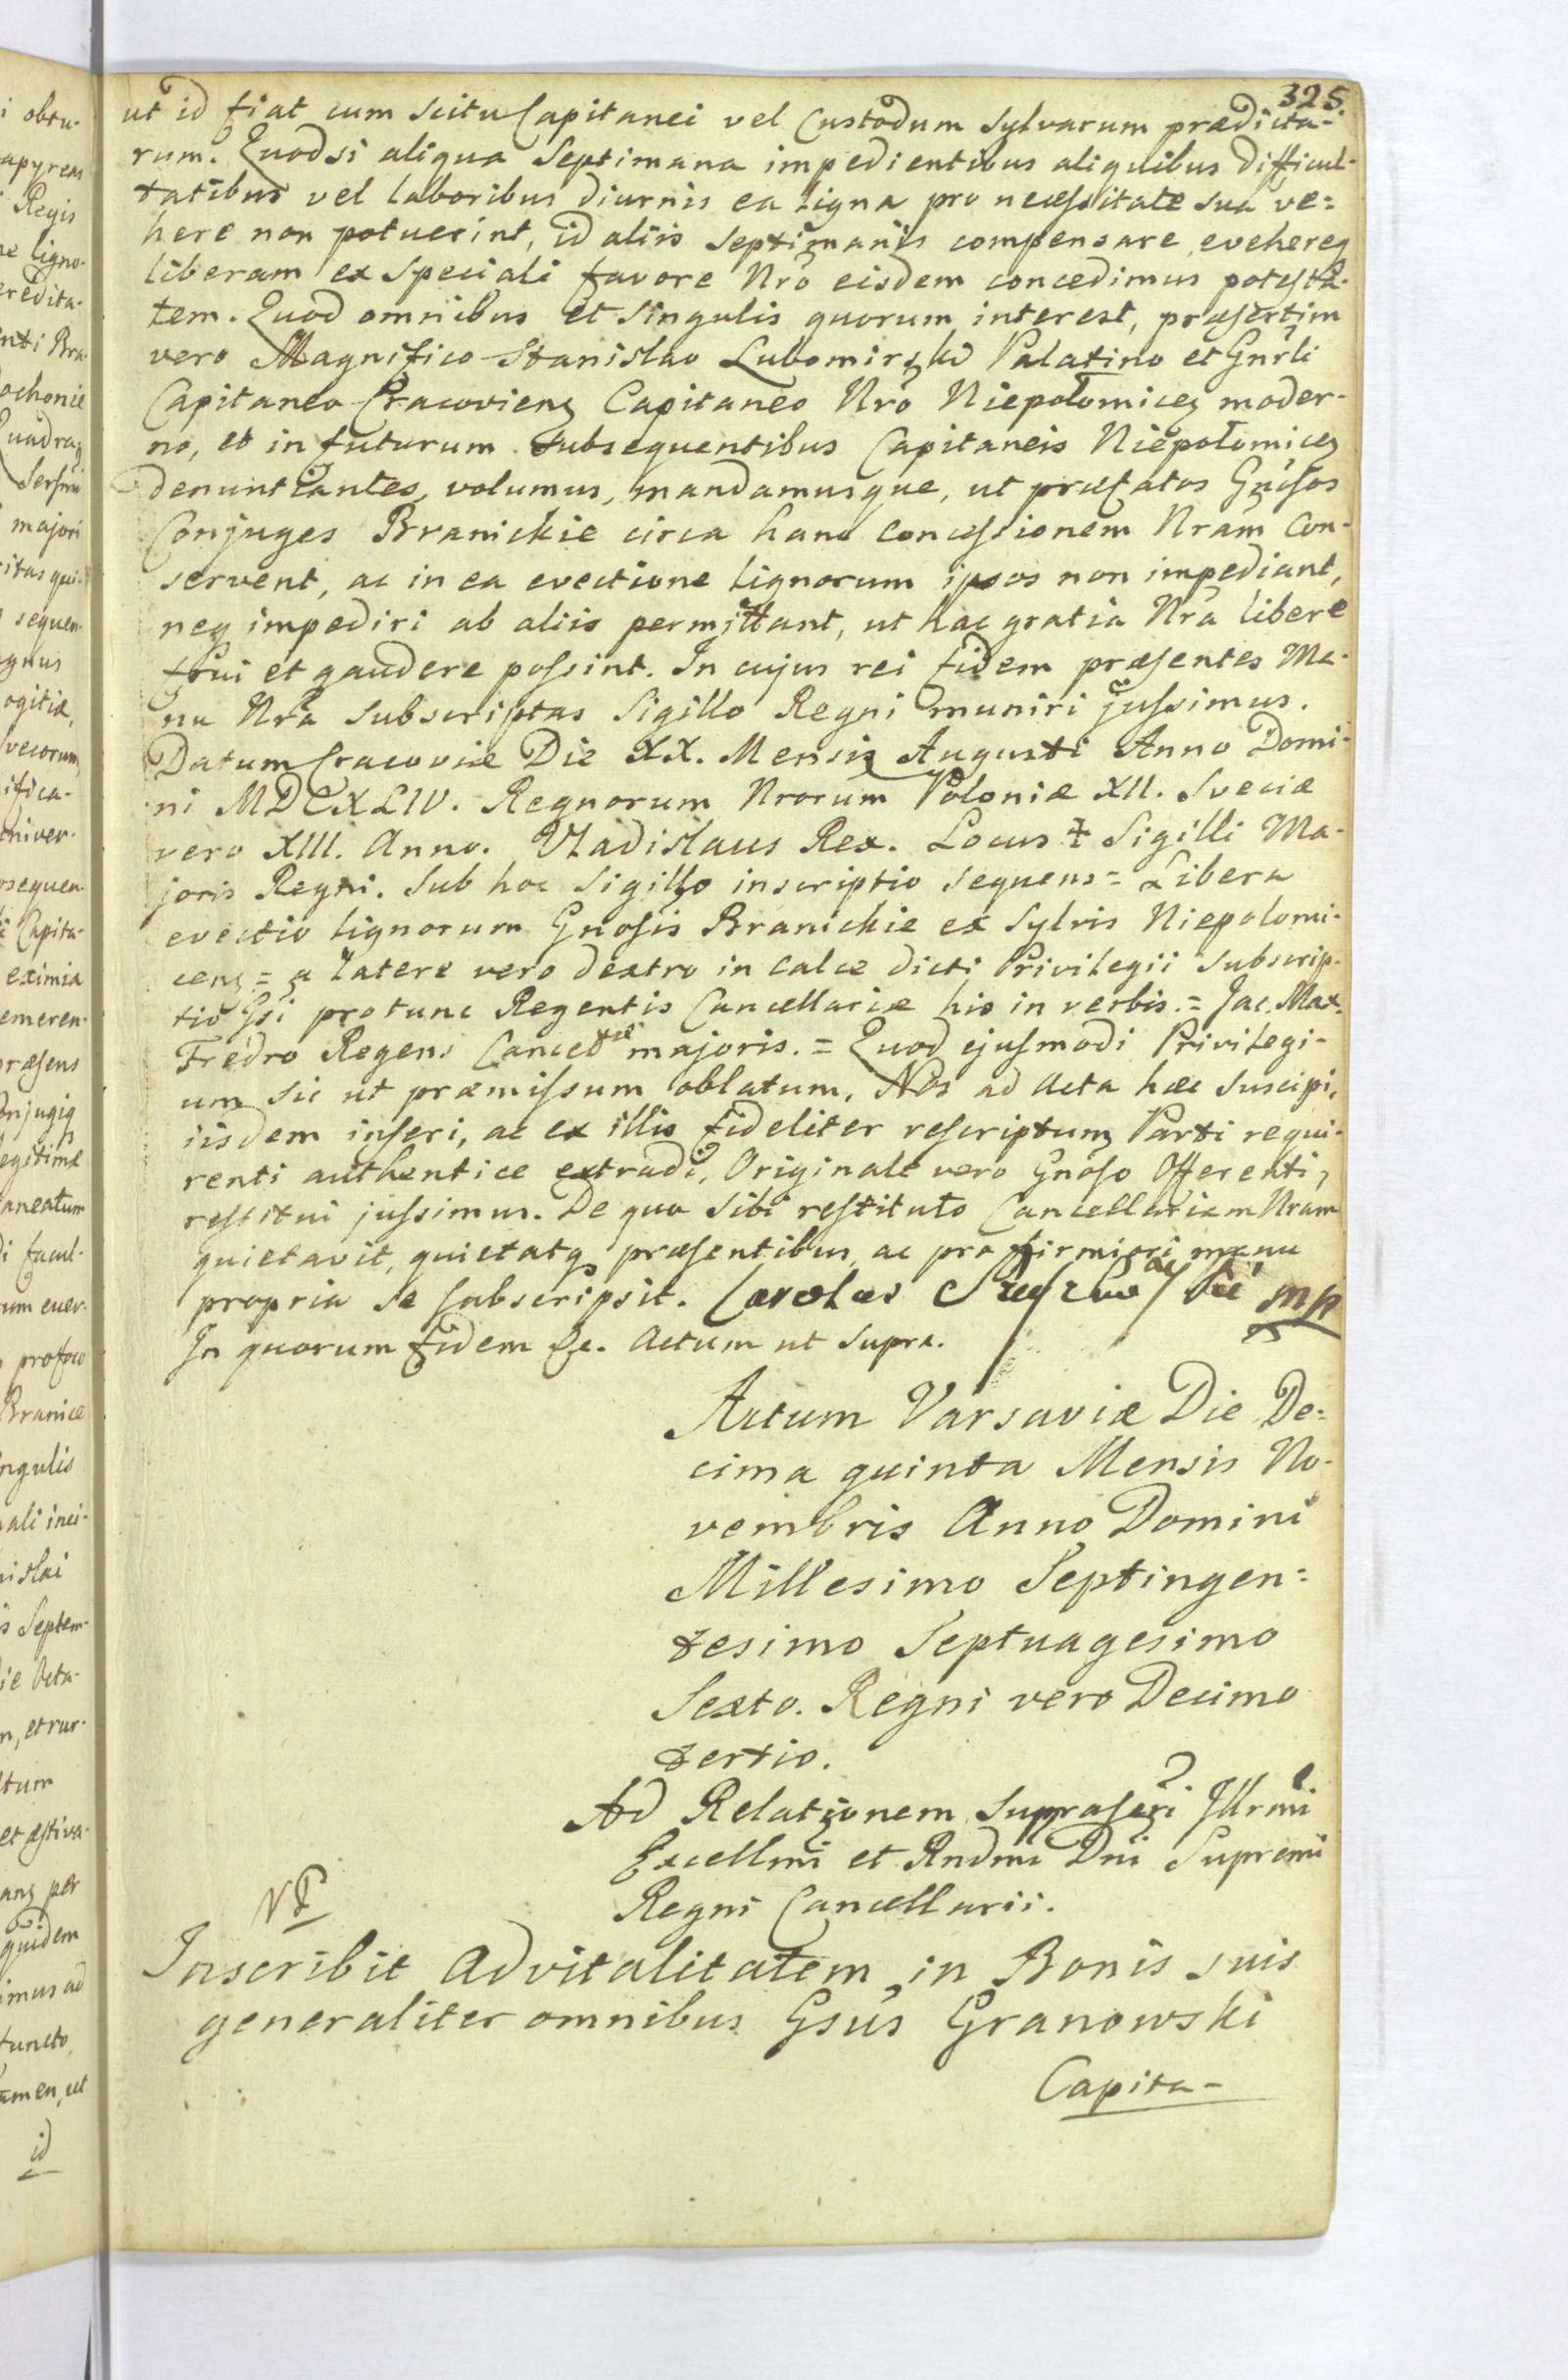 325
ut id fiat cum scitu Capitanei vel Custodum Sylvarum prædicta-
rum. Quodsi aliqua Septimana impedientibus aliquibus difficul-
tatibus vel laboribus diurnis ea ligna pro necessitate sua ve=
here non potuerint, id aliis Septimanis compensare, evehereq
liberam ex Speciali favore Nro eisdem concedimus potesta-
tem. Quod omnibus et Singulis quorum interest, præsertim
vero Magnifico Stanislao Lubomirski Palatino et Gnrli
Capitaneo Cracovien Capitaneo Nro Niepolomicen moder-
no, et in futurum subsequentibus Capitaneis Niepolomicen
denuntiantes, volumus, mandamusque, ut præfatos Gnosos
Conjuges Branickie circa hanc concessionem Nram Con-
servent, ac in ea evectione Lignorum ipsos non impediant,
neq impediri ab aliis permittant, ut hac gratia Nra libere
frui et gaudere possint. In cujus rei fidem præsentes Ma-
nu Nra Subscriptas Sigillo Regni muniri jussimus.
Datum Cracoviæ Die XX. Mensis Augusti Anno Domi-
ni MDCXLIV. Regnorum Nrorum Poloniæ XII. Sveciæ
vero XIII. Anno. Vladislaus Rex. Locus Sigilli Ma-
joris Regni. Sub hoc Sigillo inscriptio sequens = Libera
evectio lignorum Gnosis Branickie ex Sylvis Niepolomi-
cen = a Latere vero dextro in calce dicti Privilegii subscrip-
tio Gsi protunc Regentis Cancellariæ his in verbis. = Jac. Max.
Fredro Regens Cancelriæ majoris. = Quod ejusmodi Privilegi-
um sic ut præmissum oblatum, Nos ad Acta hæc suscipi,
iisdem inseri, ac ex illis fideliter rescriptum Parti requi-
renti authentice extradi, Originale vero Gnoso Offerenti,
restitui jussimus. De quo sibi restituto Cancellariam Nram
quietavit, quietatq præsentibus, ac pro firmiori manu
propria se subscripsit. Carolus mp
In quorum fidem &c. Actum ut Supra.
Actum Varsaviæ Die De=
cima quinta Mensis No-
vembris Anno Domini
Millesimo Septingen=
tesimo Septuagesimo
Sexto. Regni vero Decimo
tertio.
Ad Relationem Suprascri Illrmi
Excellmi et Rndmi Dni Supremi
Regni Cancellarii.
Inscribit Advitalitatem in Bonis suis
generaliter omnibus Gsus Granowski
Capita-